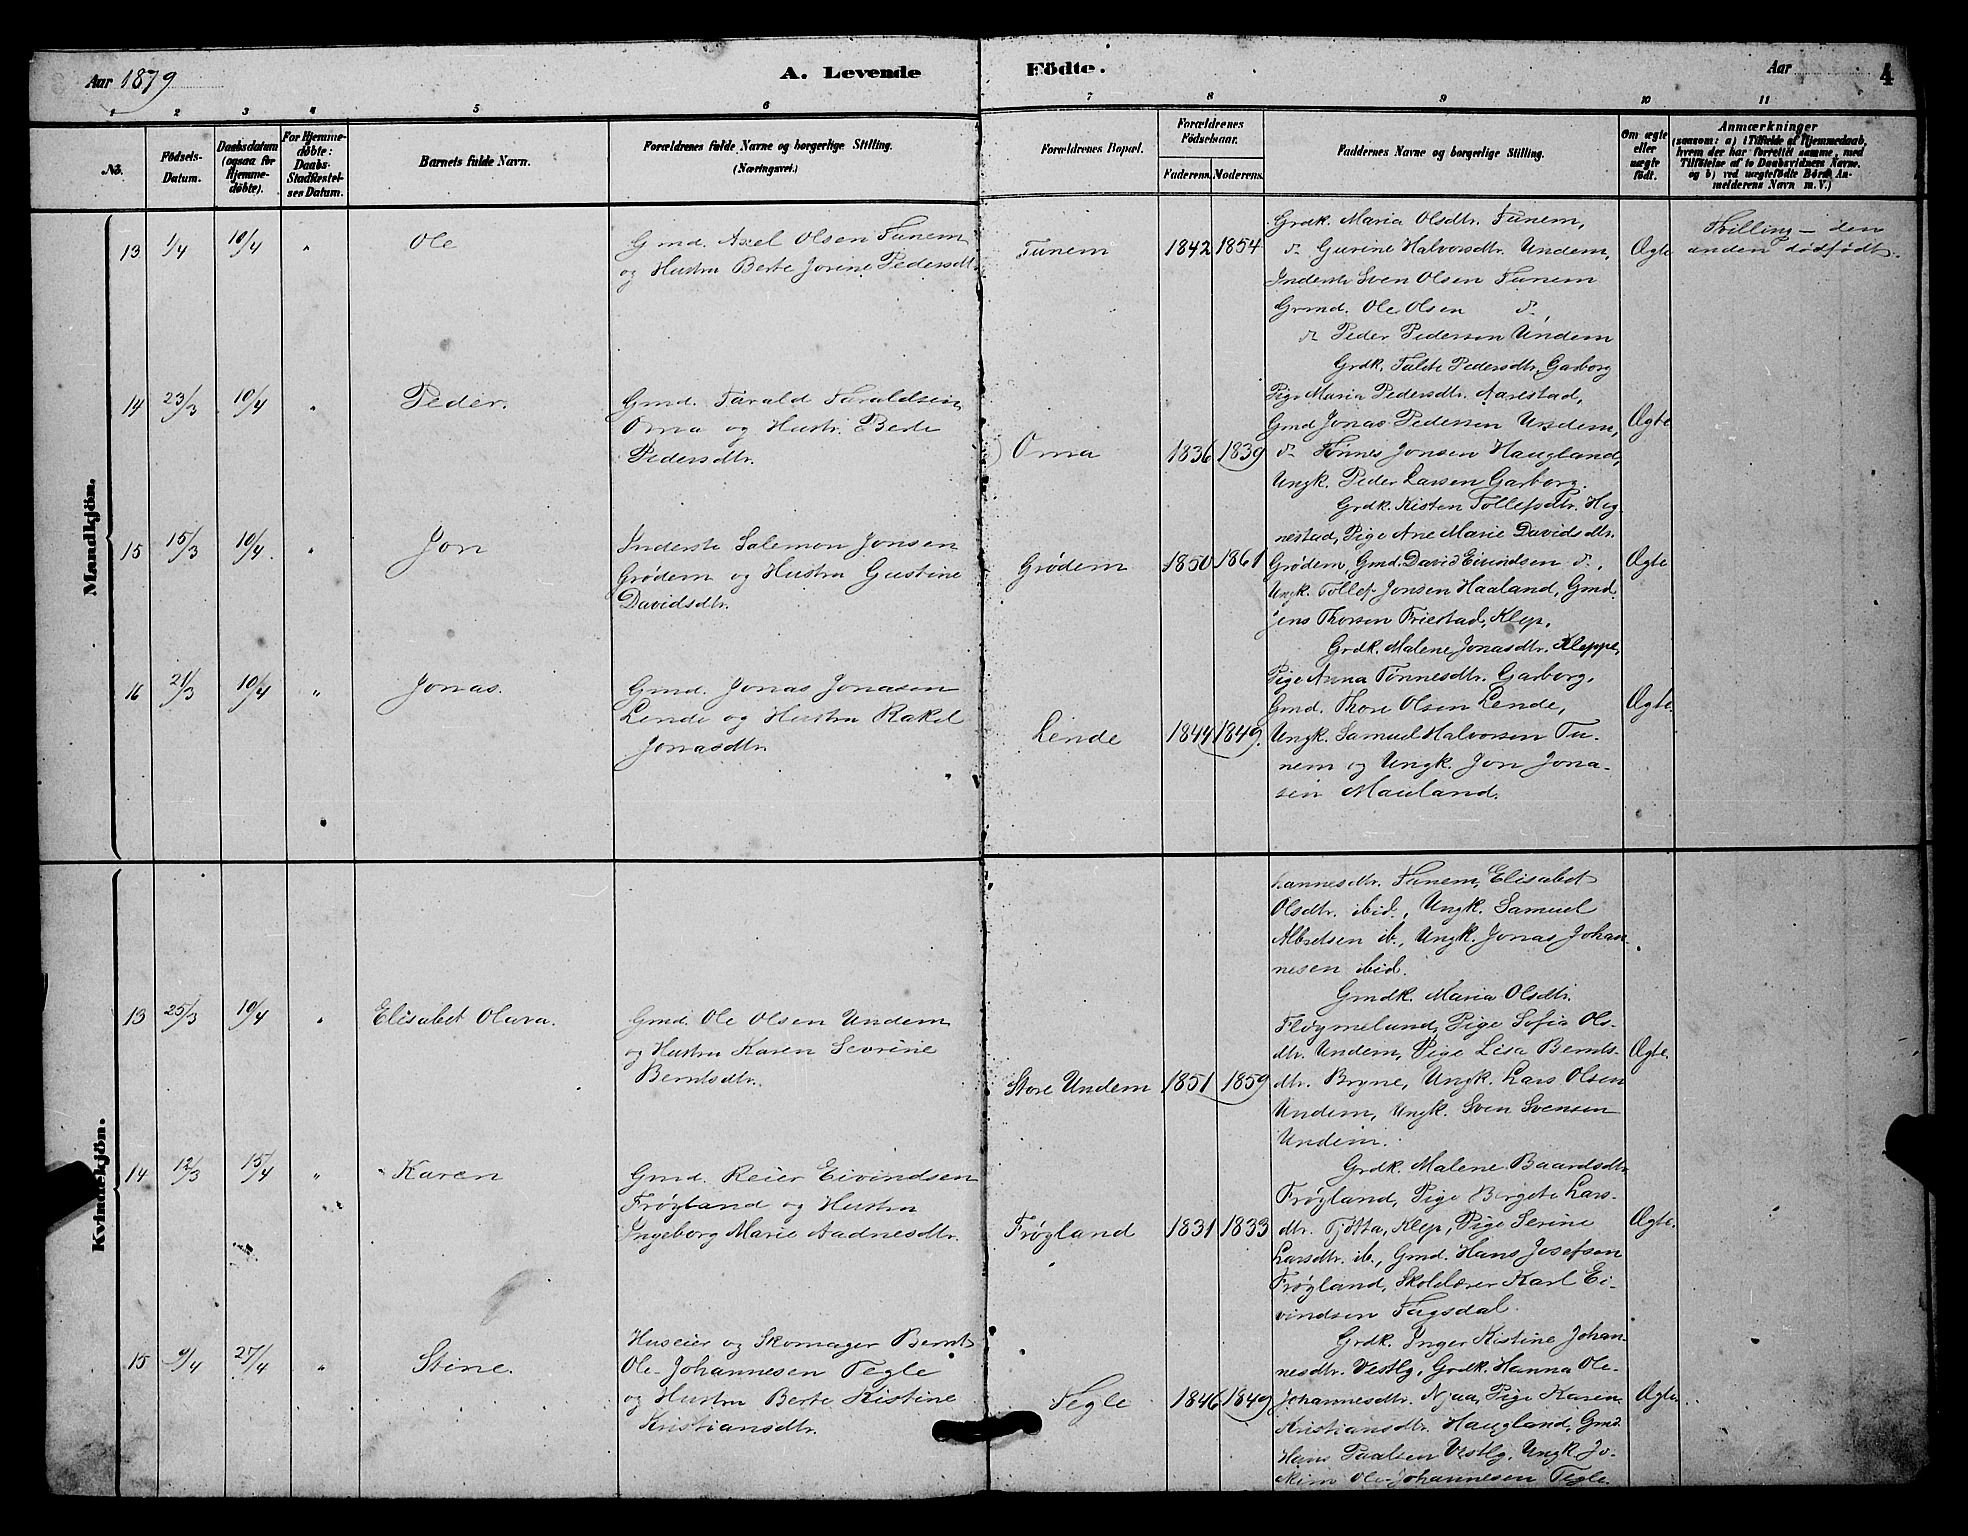 Aar 1879
A. Levende Födte.
Aar 4
1 2 3 4 5 6 7 8 9 10 11
No.
Födsels-Datum.
Daabsdatum (ogsaa for Hjemme-döbte).
For Hjemme-døbte: Daabs-Stadfæstel-ses Datum.
Barnets fulde Navn.
Forældrenes fulde Navne og borgerlige Stilling. (Næringsvei.)
Forældrenes Bopæl.
Forældrenes Födselsaar.
Faderens. Moderens.
Faddernes Navne og borgerlige Stilling.
Om ægte eller uægte födt.
Anmærkninger
(saasom: a) i Tilfælde af Hjemmedaab,
hvem der har forrettet samme, med
Tilföielse af to Daabsvidners Navne,
og b) ved uægtefödte Börn An-
melderens Navn m. V.)
Mandkjön.
13 1/4 10/4 " Ole
Gmd. Axel Olsen Tunem
og Hustru Berte Jorine Pedersdtr.
Tunem 1842 1854
Grdk. Maria Olsdtr. Tunem,
do Gurine Halvorsdtr. Undem,
Inderste Sven Olsen Tunem
Grmd. Ole Olsen do,
do Peder Pedersen Undem
Ægte
Tvilling – den
anden dödfödt.
14 23/3 10/4 " Peder.
Gmd. Tarald Taraldsen
Oma og Hustr. Berte
Pedersdtr.
Oma 1836 1839
Grdk. Talete Pedersdtr. Garborg
Pige Maria Pedersdtr. Aarestad,
Gmd Jonas Pedersen Undem,
do Tönnes Jonsen Haugland,
Ungk. Peder Larsen Garborg.
Ægte
15 15/3 10/4. " Jon
Inderste Salemon Jonsen
Grødem og Hustru Gustine
Davidsdtr.
Grødem 1850 1861
Grdk. Kisten Tollefsdtr. Hog-
nestad, Pige Ane Marie Davidsdtr.
Grødem Gmd. David Eivindsen do.,
Ungk. Tollef Jonsen Haaland, Gmd.
Jens Thorsen Friestad, Klep.
Ægte
16 21/3 10/4 " Jonas.
Gmd. Jonas Jonasen
Lende og Hustru Rakel
Jonasdtr.
Lende 1844 1849.
Grdk. Malene Jonasdtr. Kleppe,
Pige Anna Tönnesdtr. Garborg,
Gmd. Thore Olsen Lende,
Ungk. Samuel Halvorsen Tu-
nem og Ungk. Jon Jona-
sen Mauland.
Ægte.
Kvindekjön.
hannesdtr. Tunem, Elisabet
Olsdtr. ibid., Ungk. Samuel
Albretsen ib., Ungk. Jonas Johan-
nesen ibid.
13 25/3 10/4 " Elisabet Oluva.
Gmd. Ole Olsen Undem
og Hustru Karen Sevrine
Berntsdtr.
Store Undem 1851 1859
Gmdk. Maria Olsdtr.
Fløymelund, Pige Sofia Ols-
dtr. Undem, Pige Lisa Bernts-
dtr. Bryne, Ungk. Lars Olsen
Undem, Ungk. Sven Svensen
Undem.
Ægte.
14 12/3 15/4 " Karen
Gmd. Reier Eivindsen
Frøyland og Hustru
Ingeborg Marie Aadnesdtr.
Frøyland 1831 1833
Grdk. Malene Baardsdtr.
Frøyland, Pige Bergete Lars-
dtr. Tjøtta, Klep, Pige Serine
Larsdtr. ib., Gmd. Hans Josefsen
Frøyland, Skolelærer Karl Ei-
vindsen Fugsdal.
Ægte.
15 9/4 27/4 " Stine.
Huseier og Skomager Bernt
Ole-Johannesen Tegle
og Hustru Berte Kistine
Kristiansdtr.
Tegle 1846 1849
Grdk. Inger Kistine Johan-
nesdtr. Vestly, Grdk. Hanna Ole-
Johannesdtr. Njaa, Pige Karen
Kristiansdtr. Haugland, Gmd.
Hans Paulsen Vestly, Ungk Jo-
akim Ole-Johannesen Tegle.
Ægte.